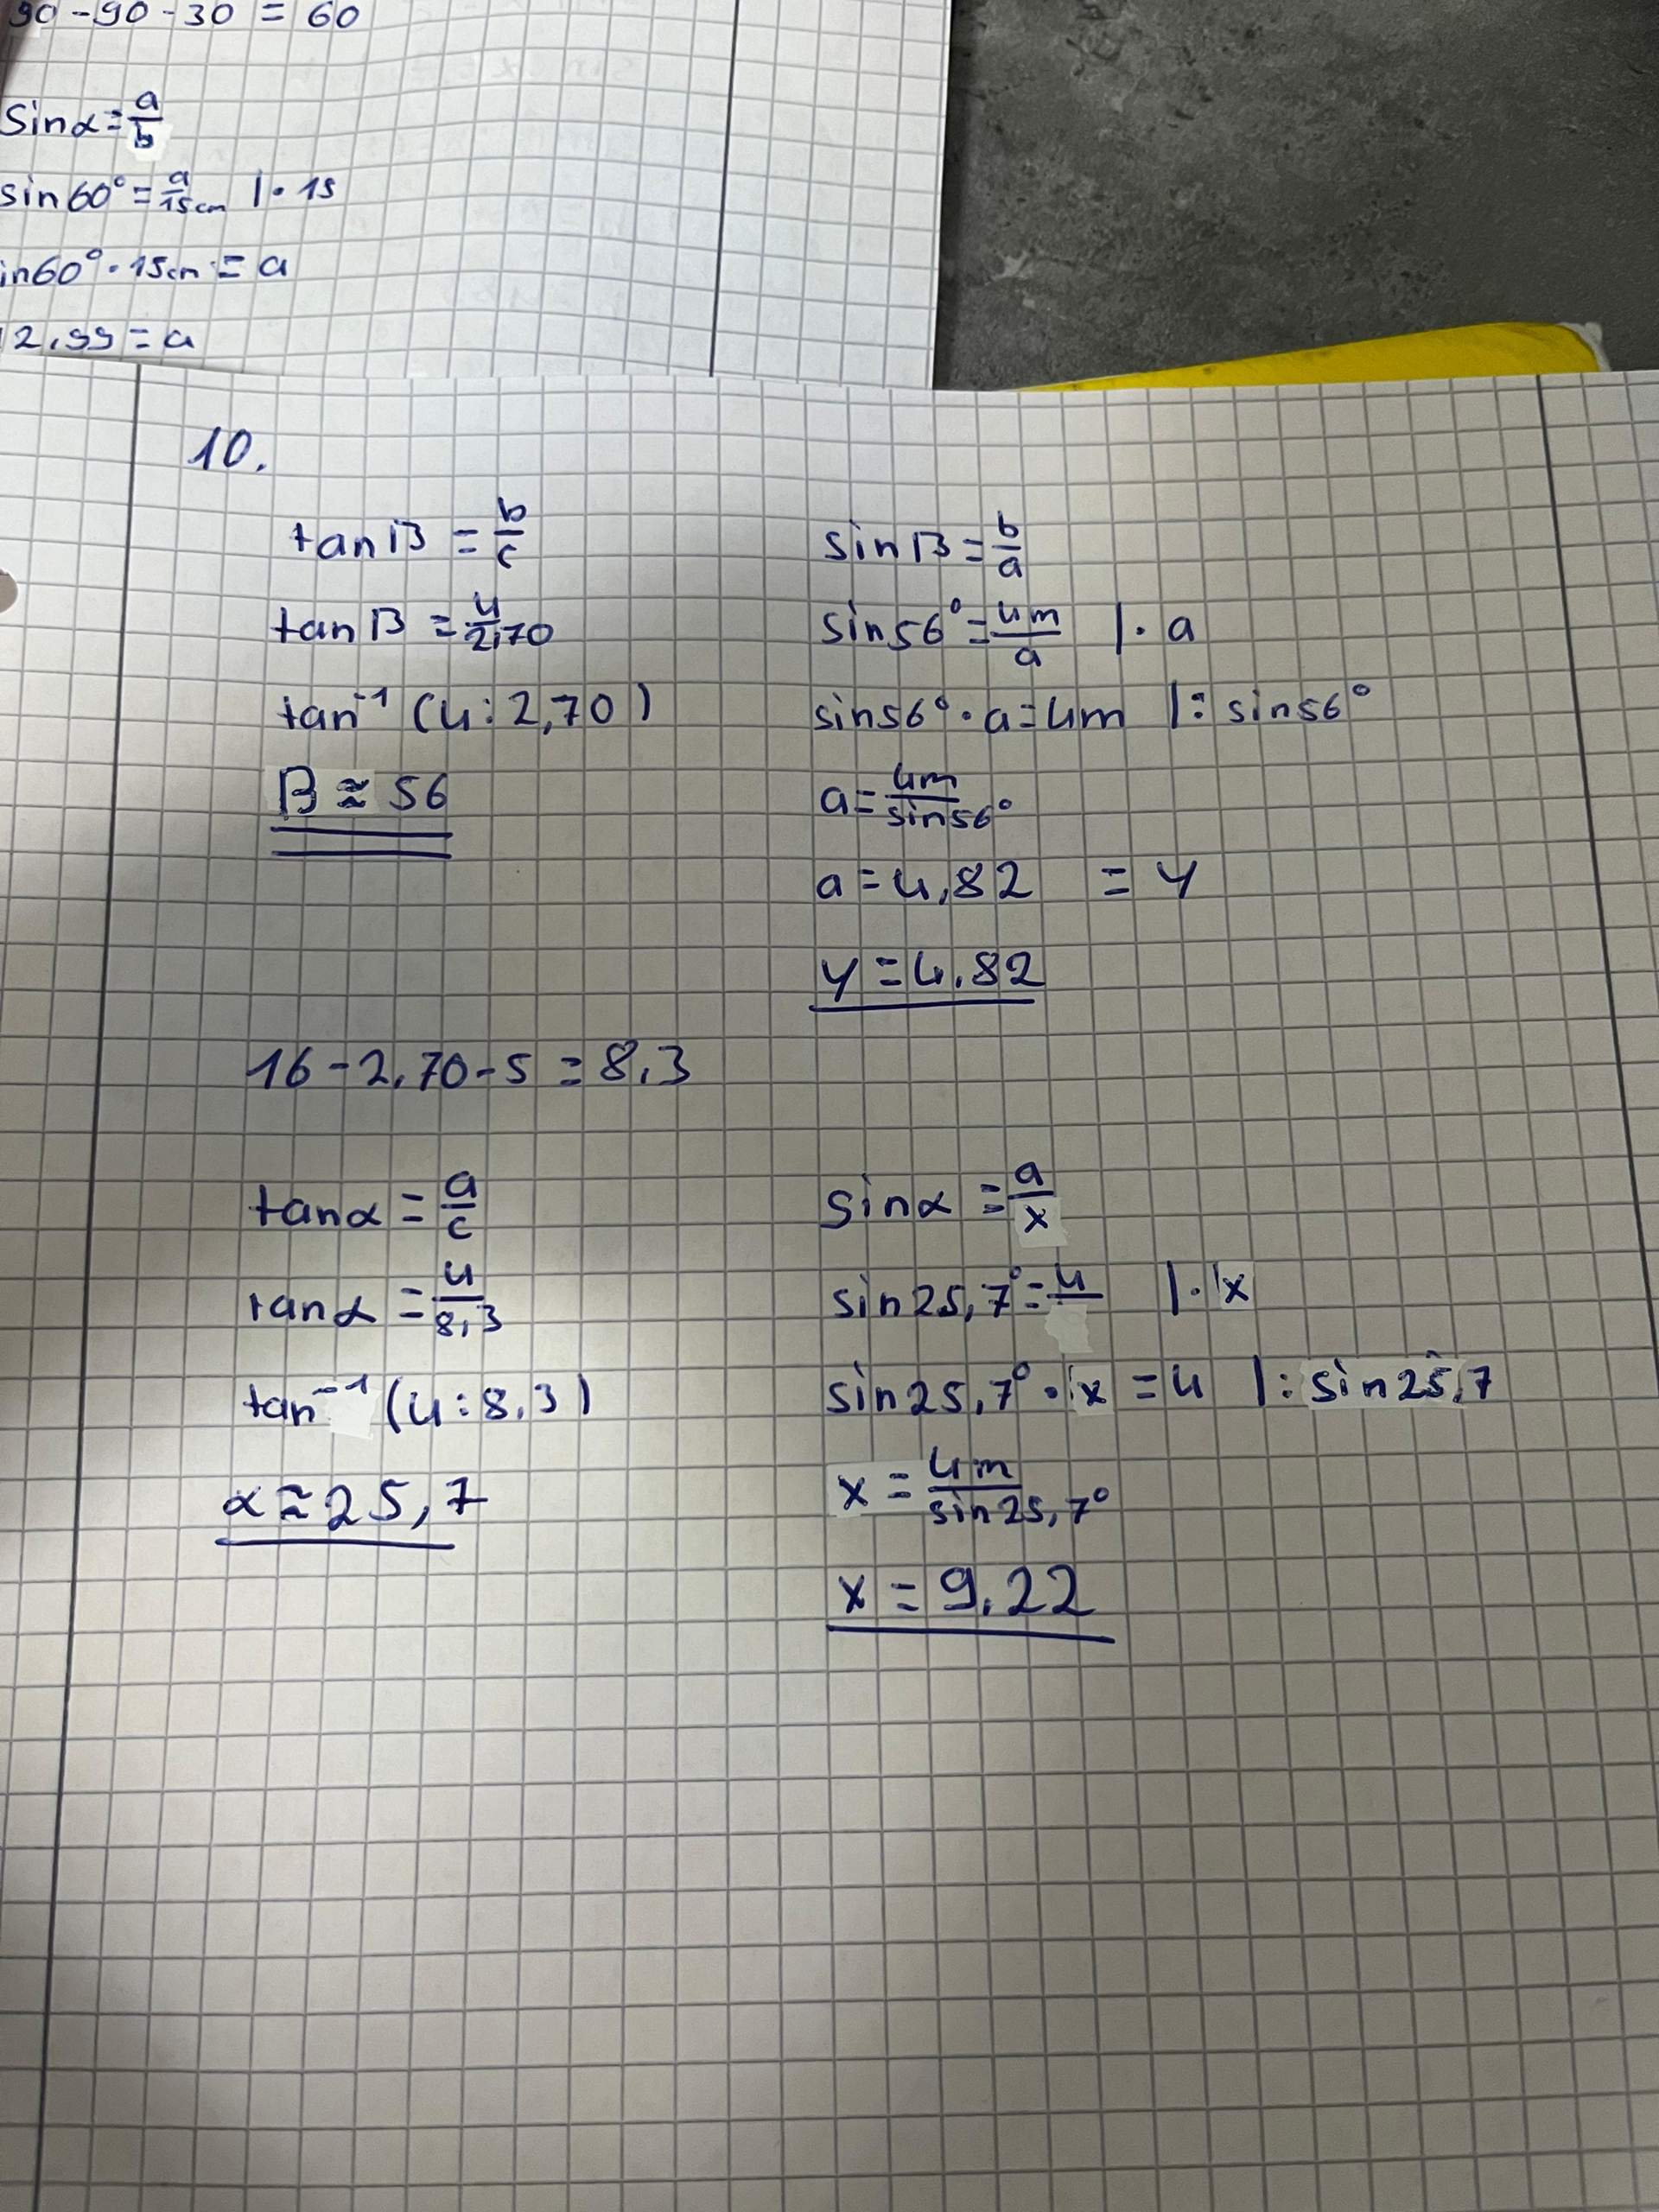 90 - 90 - 30 = 60
sin α = a/b
sin 60° = a/15cm | · 15
in 60° · 15cm = a
12,99 = a
10.
tan β = b/c
tan β = 4/2,70
tan⁻¹ (4 : 2,70)
β ≈ 56
sin β = b/a
sin 56° = 4m/a | · a
sin 56° · a = 4m | : sin 56°
a = 4m/sin 56°
a = 4,82 = y
y = 4,82
16 - 2,70 - 5 = 8,3
tan α = a/c
tan α = 4/8,3
tan⁻¹ (4 : 8,3)
α ≈ 25,7
sin α = a/x
sin 25,7° = 4/ | · x
sin 25,7° · x = 4 | : sin 25,7
x = 4m/sin 25,7°
x = 9,22